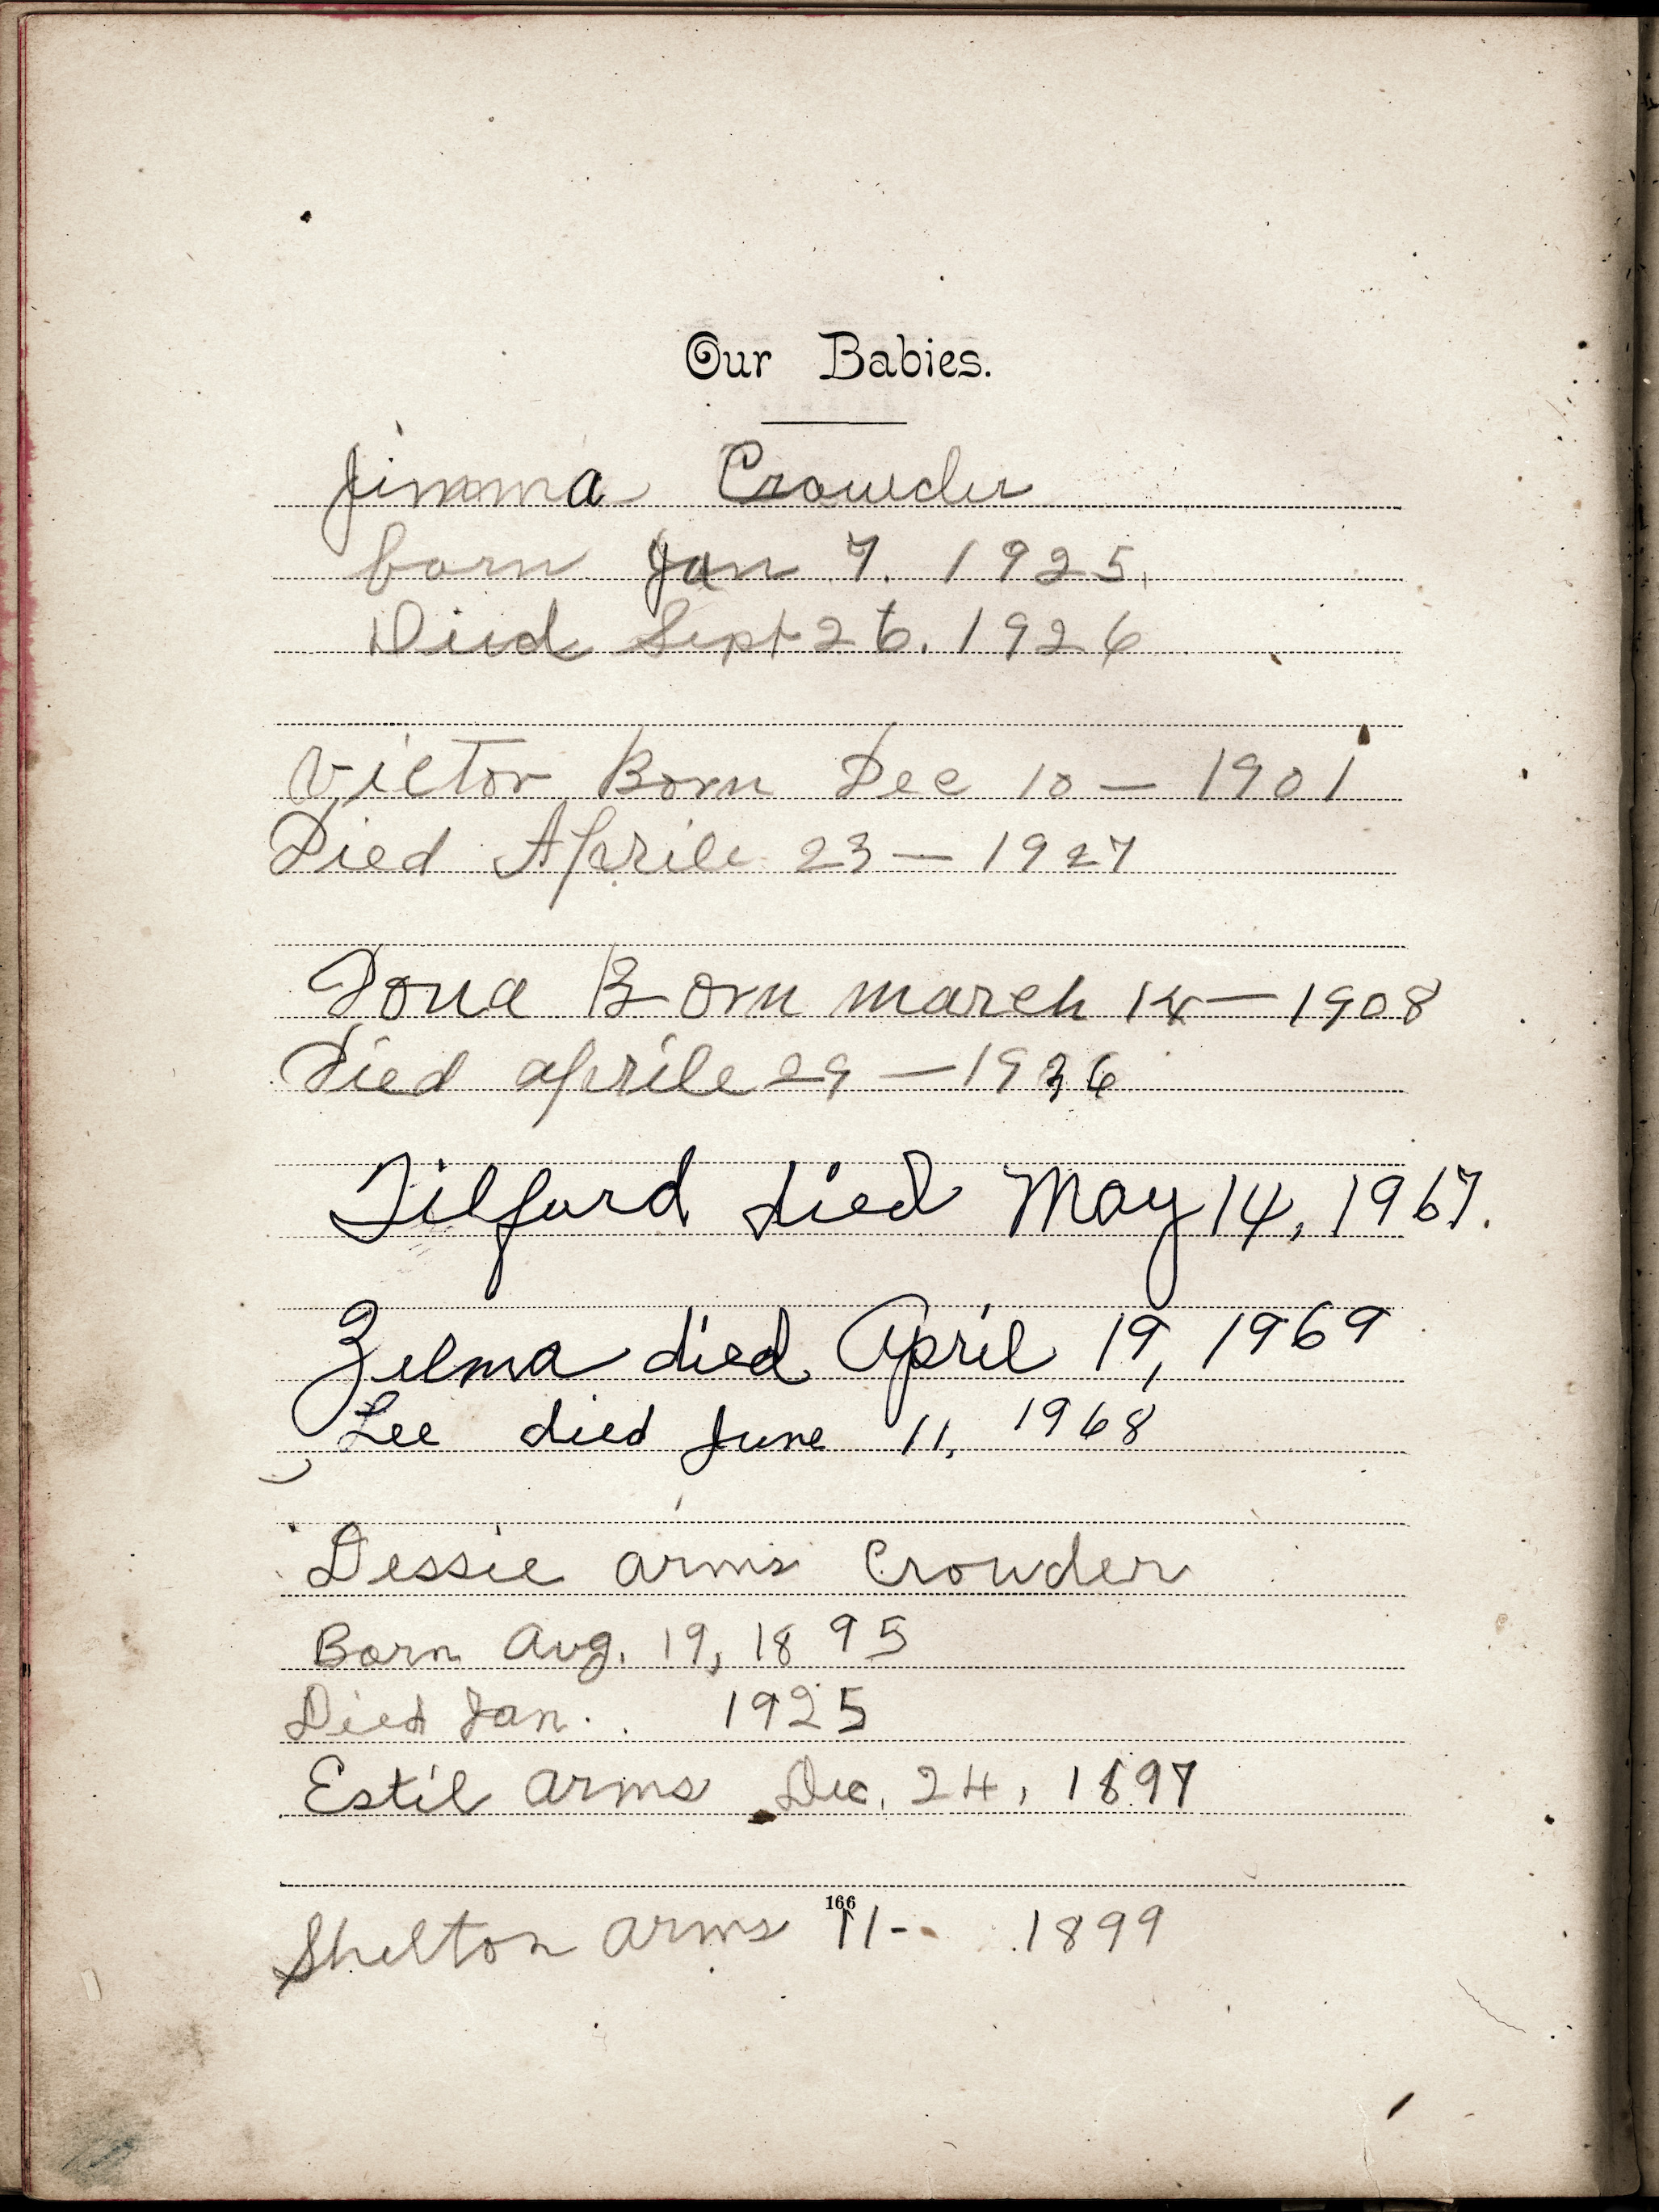 Our Babies.
Jimma Crowder
born Jan 7. 1925.
Died Sept 26. 1926
Victor Born Dec 10 — 1901
Died Aprile 23 — 1927
Born march 14 — 1908
Died aprile 29 — 1936
Tilford died May 14, 1967.
Zelma died April 19, 1969
Lee died June 11, 1968
Dessie arms Crowder
Born Aug. 19, 1895
Died Jan. 1925
Estil arms Dec. 24, 1897
166
Shelton arms 11- 1899